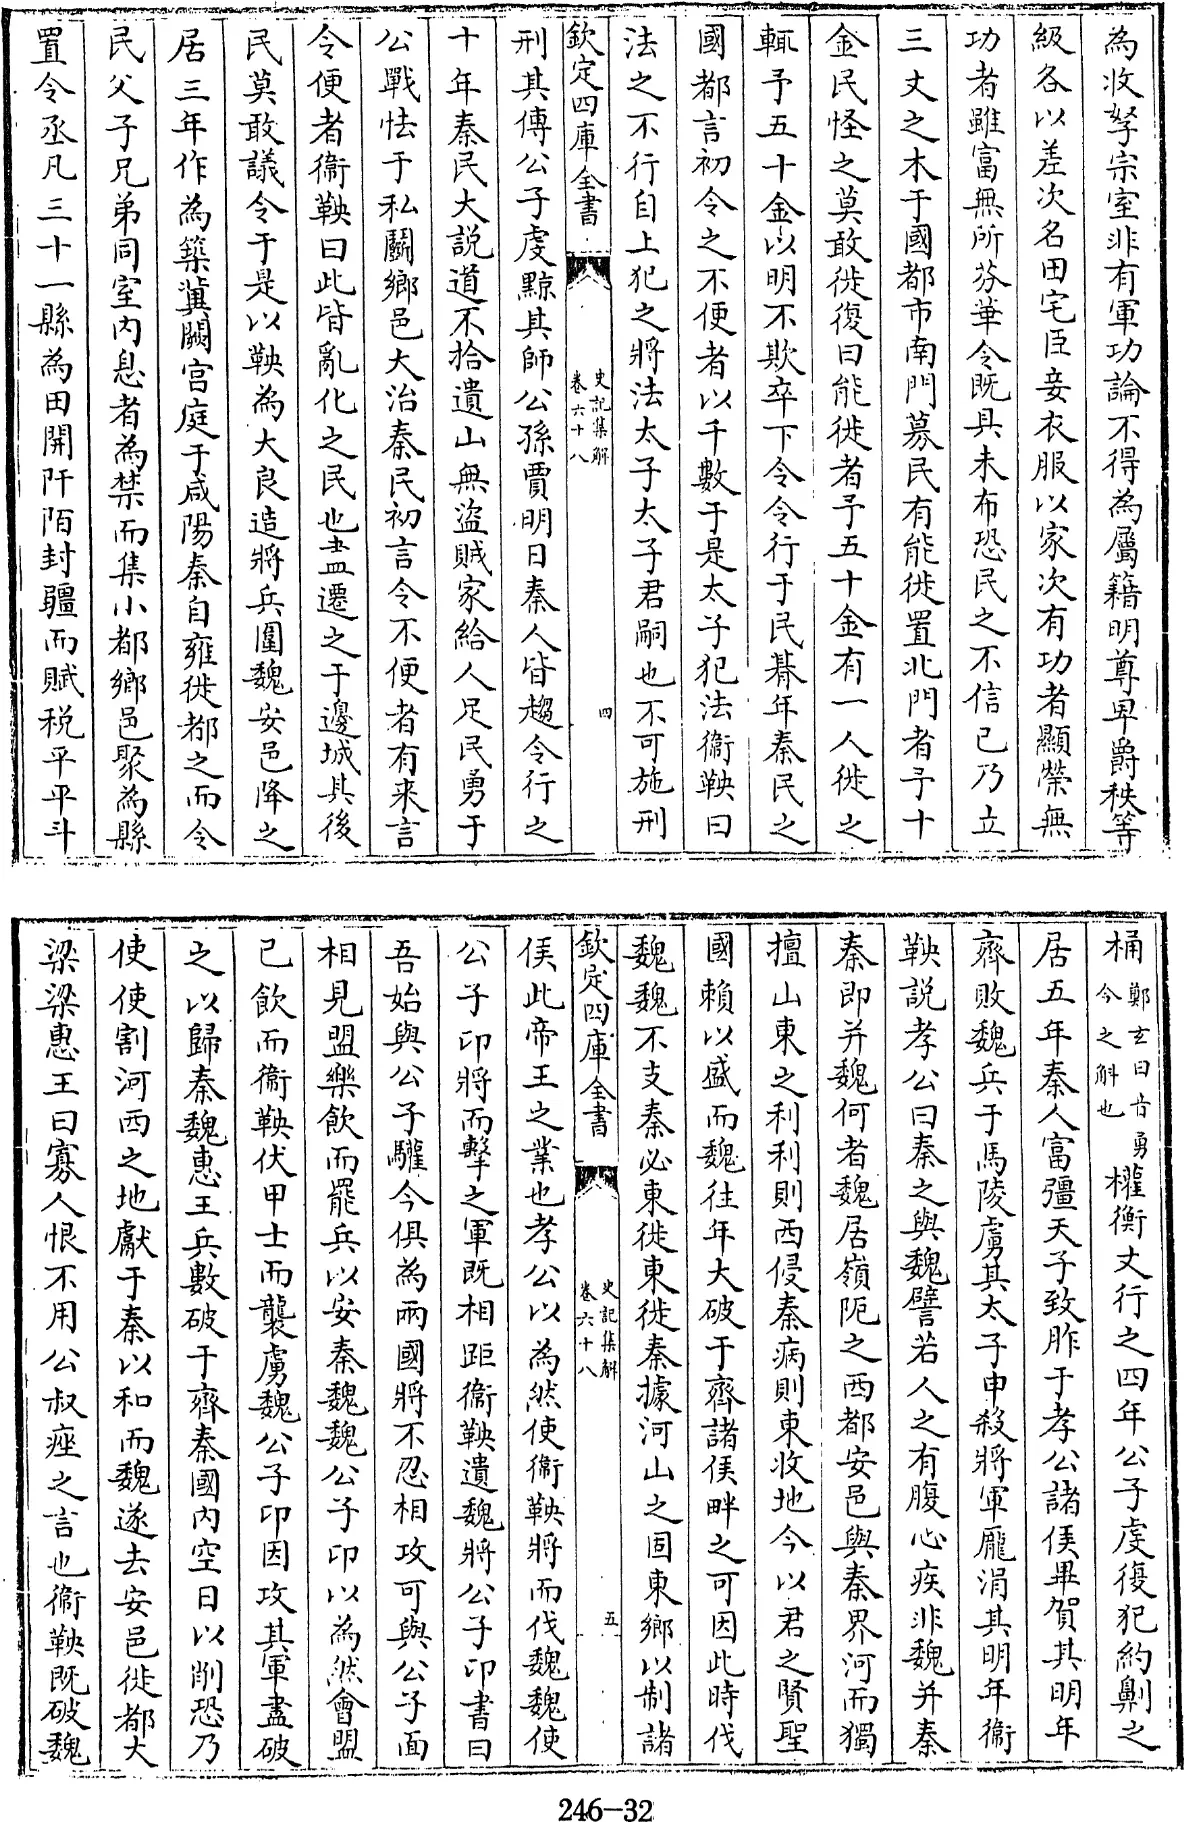 為收孥宗室非有軍功論不得為屬籍明尊卑爵秩等
級各以差次名田宅臣妾衣服以家次有功者顯榮無
功者雖富無所芬華令既具未布恐民之不信已乃立
三丈之木于國都市南門募民有能徙置北門者予十
金民怪之莫敢徙復曰能徙者予五十金有一人徙之
輒予五十金以明不欺卒下令令行于民朞年秦民之
國都言初令之不便者以千數于是太子犯法衛鞅曰
法之不行自上犯之將法太子太子君嗣也不可施刑
欽定四庫全書
史記集解
卷六十八
四
刑其傅公子虔黥其師公孫賈明日秦人皆趨令行之
十年秦民大說道不拾遺山無盜賊家給人足民勇于
公戰怯于私鬬鄉邑大治秦民初言令不便者有来言
令便者衛鞅曰此皆亂化之民也盡遷之于邊城其後
民莫敢議令于是以鞅為大良造將兵圍魏安邑降之
居三年作為築冀闕宫庭于咸陽秦自雍徙都之而令
民父子兄弟同室内息者為禁而集小都鄉邑聚為縣
置令丞凡三十一縣為田開阡陌封疆而賦税平平斗
桶鄭玄曰音勇今之斛也權衡丈行之四年公子虔復犯約劓之
居五年秦人富彊天子致胙于孝公諸侯畢賀其明年
齊敗魏兵于馬陵虜其太子申殺將軍龎涓其明年衛
鞅說孝公曰秦之與魏譬若人之有腹心疾非魏并秦
秦即并魏何者魏居嶺阨之西都安邑與秦界河而獨
擅山東之利利則西侵秦病則東收地今以君之賢聖
國賴以盛而魏往年大破于齊諸侯畔之可因此時伐
魏魏不支秦必東徙東徙秦據河山之固東鄉以制諸
欽定四庫全書
史記集解
卷六十八
五
侯此帝王之業也孝公以為然使衛鞅將而伐魏魏使
公子卬將而擊之軍既相距衛鞅遺魏將公子卬書曰
吾始與公子驩今俱為兩國將不忍相攻可與公子面
相見盟樂飲而罷兵以安秦魏魏公子卬以為然會盟
已飲而衛鞅伏甲士而襲虜魏公子卬因攻其軍盡破
之以歸秦魏惠王兵數破于齊秦國内空日以削恐乃
使使割河西之地獻于秦以和而魏遂去安邑徙都大
梁梁惠王曰寡人恨不用公叔痤之言也衛鞅既破魏
246-32